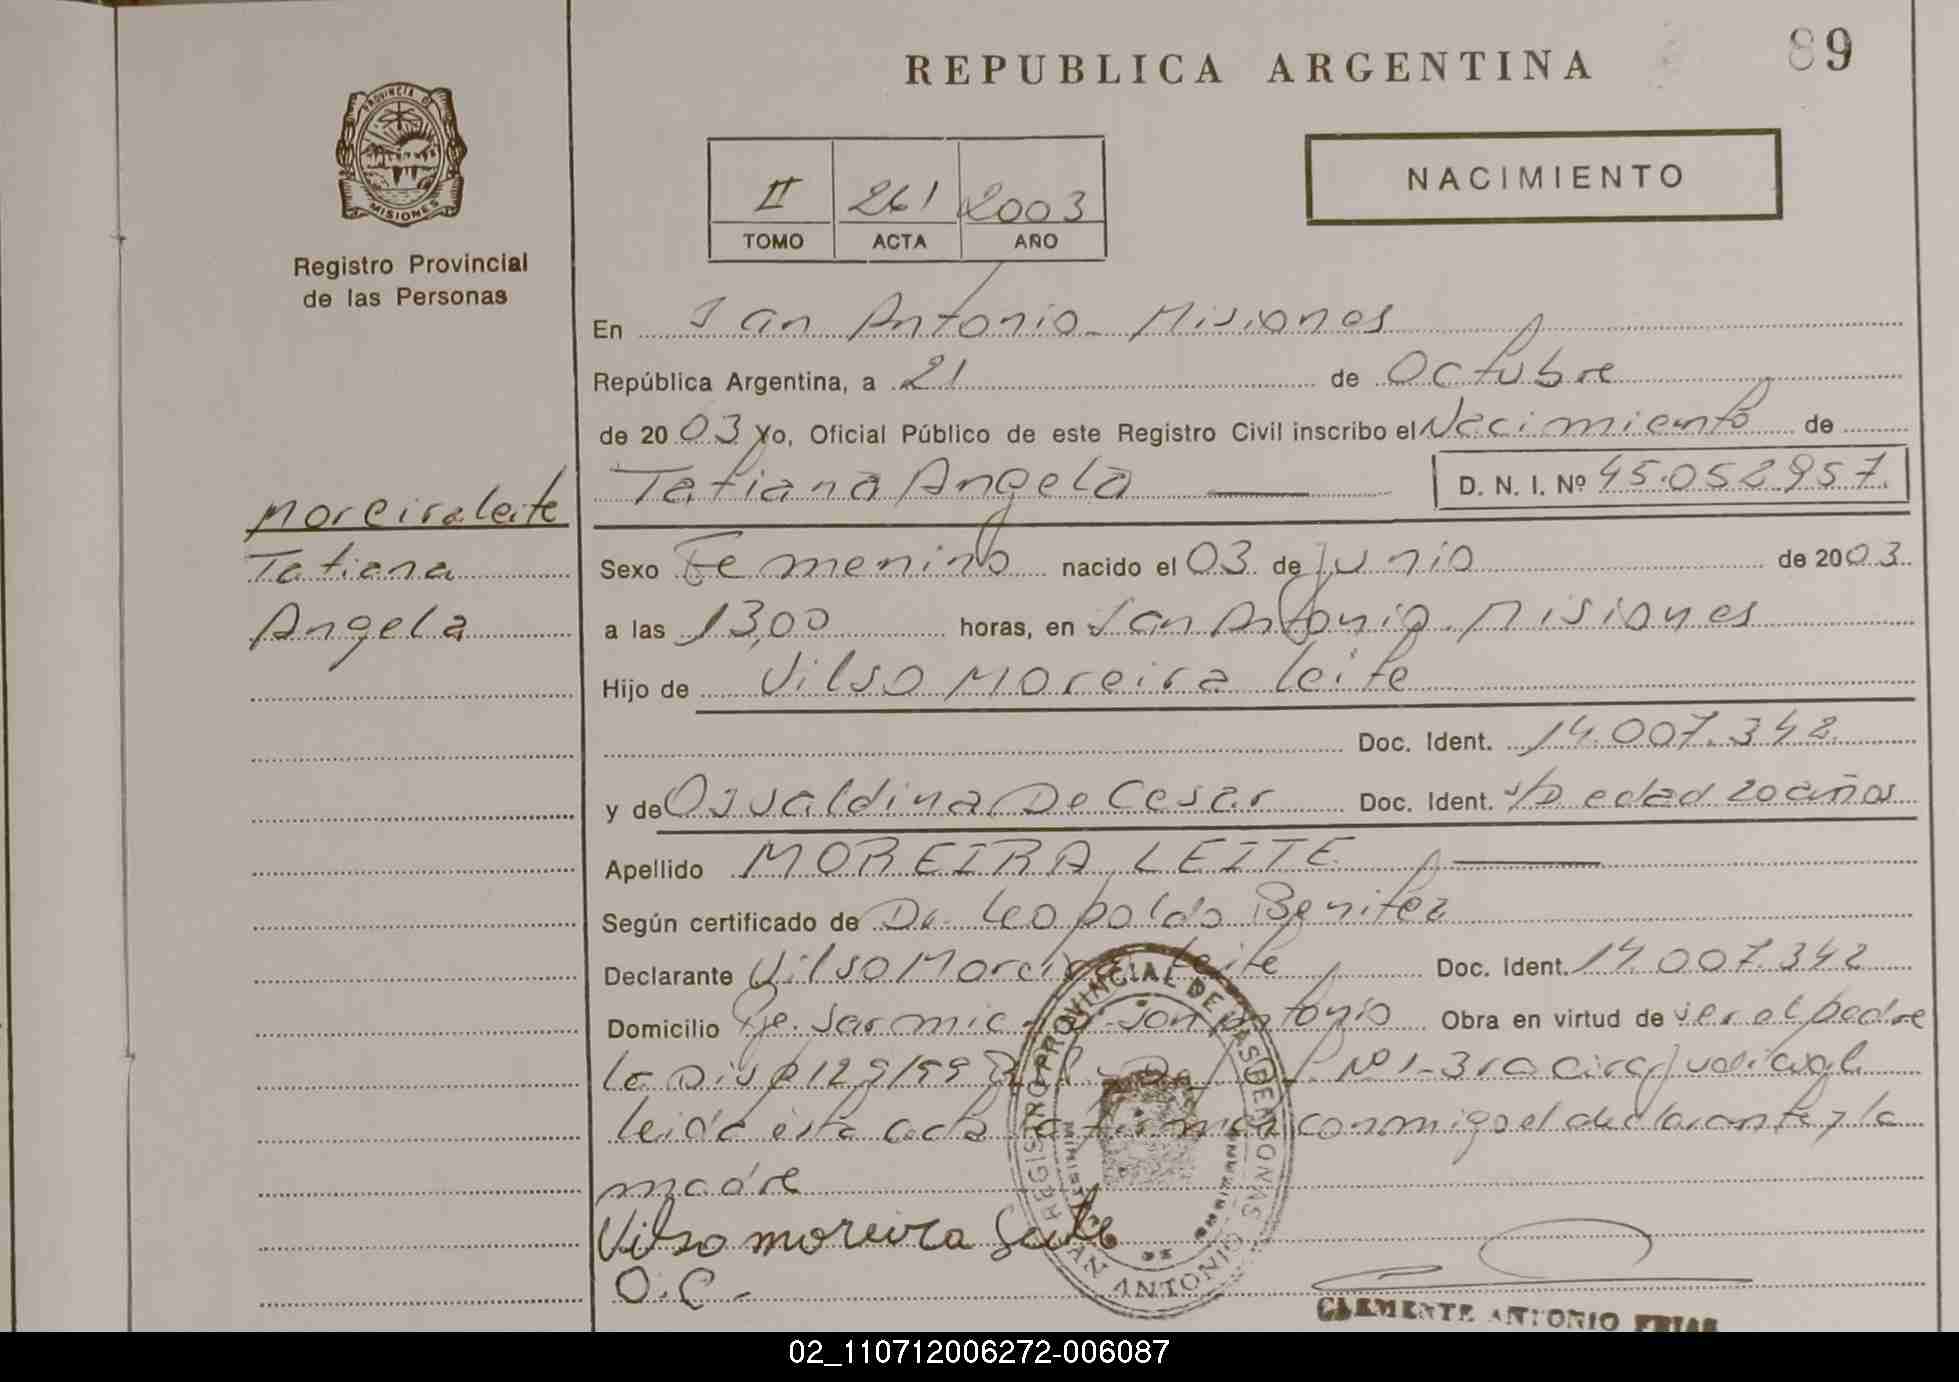 REPUBLICA ARGENTINA
89
PROVINCIA DE
MISIONES
Registro Provincial
de las Personas
II 261 2003
TOMO ACTA AÑO
NACIMIENTO
En San Antonio - Misiones
República Argentina, a 21 de Octubre
de 2003 Yo, Oficial Público de este Registro Civil inscribo el Nacimiento de
Tatiana Angela D. N. I. Nº 45.052.957.
Moreira leite
Tatiana
Angela
Sexo Femenino nacido el 03 de junio de 2003.
a las 13,00 horas, en San Antonio. Misiones
Hijo de Vilso Moreira Leite
Doc. Ident. 14.007.342.
y de Osvaldina De Cesar Doc. Ident. S/D edad 20 años
Apellido MOREIRA LEITE
Según certificado de Dr. Leopoldo Benitez
Declarante Vilso Moreira Leite Doc. Ident. 14.007.342
Domicilio San Antonio Obra en virtud de ser el padre
la Disp 129/99 Nº 1 - 3ra circ judicial
leida esta acta la firman conmigo el declarante y la
madre
Vilso moreira Leite
O. C.-
REGISTRO PROVINCIAL DE LAS PERSONAS
SAN ANTONIO
CLEMENTE ANTONIO FRIAS
02_110712006272-006087